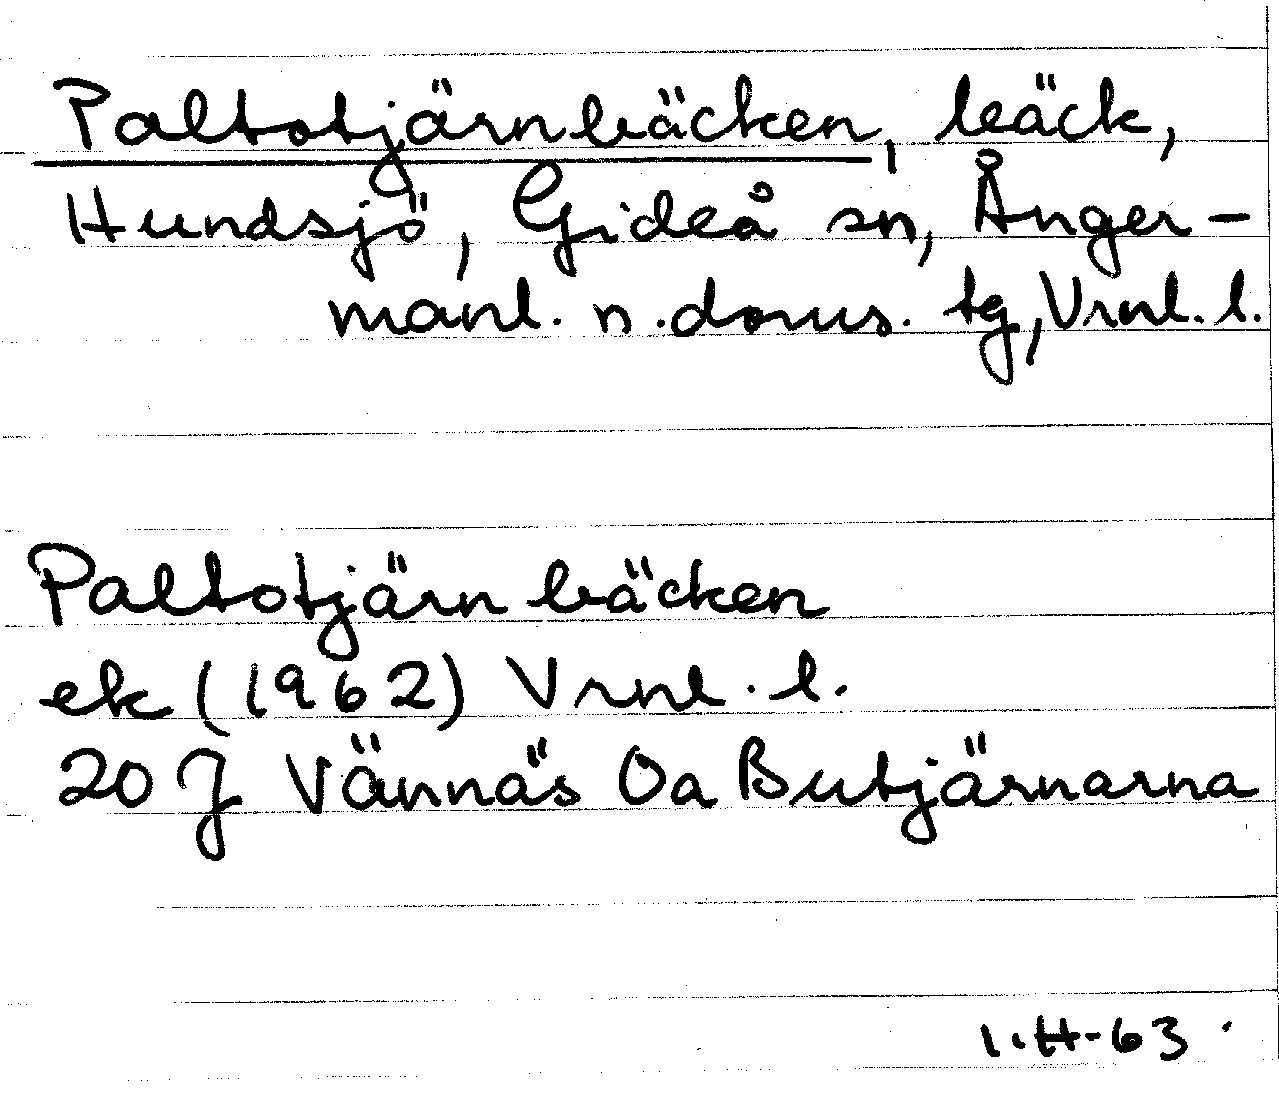 Paltotjärnbäcken, bäck,
Hundsjö, Gideå sn, Ånger-
manl. n. doms. tg, Vrnl. l.
Paltotjärnbäcken
ek (1962) Vrnl. l.
20 J Vännäs Oa Butjärnarna
I.H-63